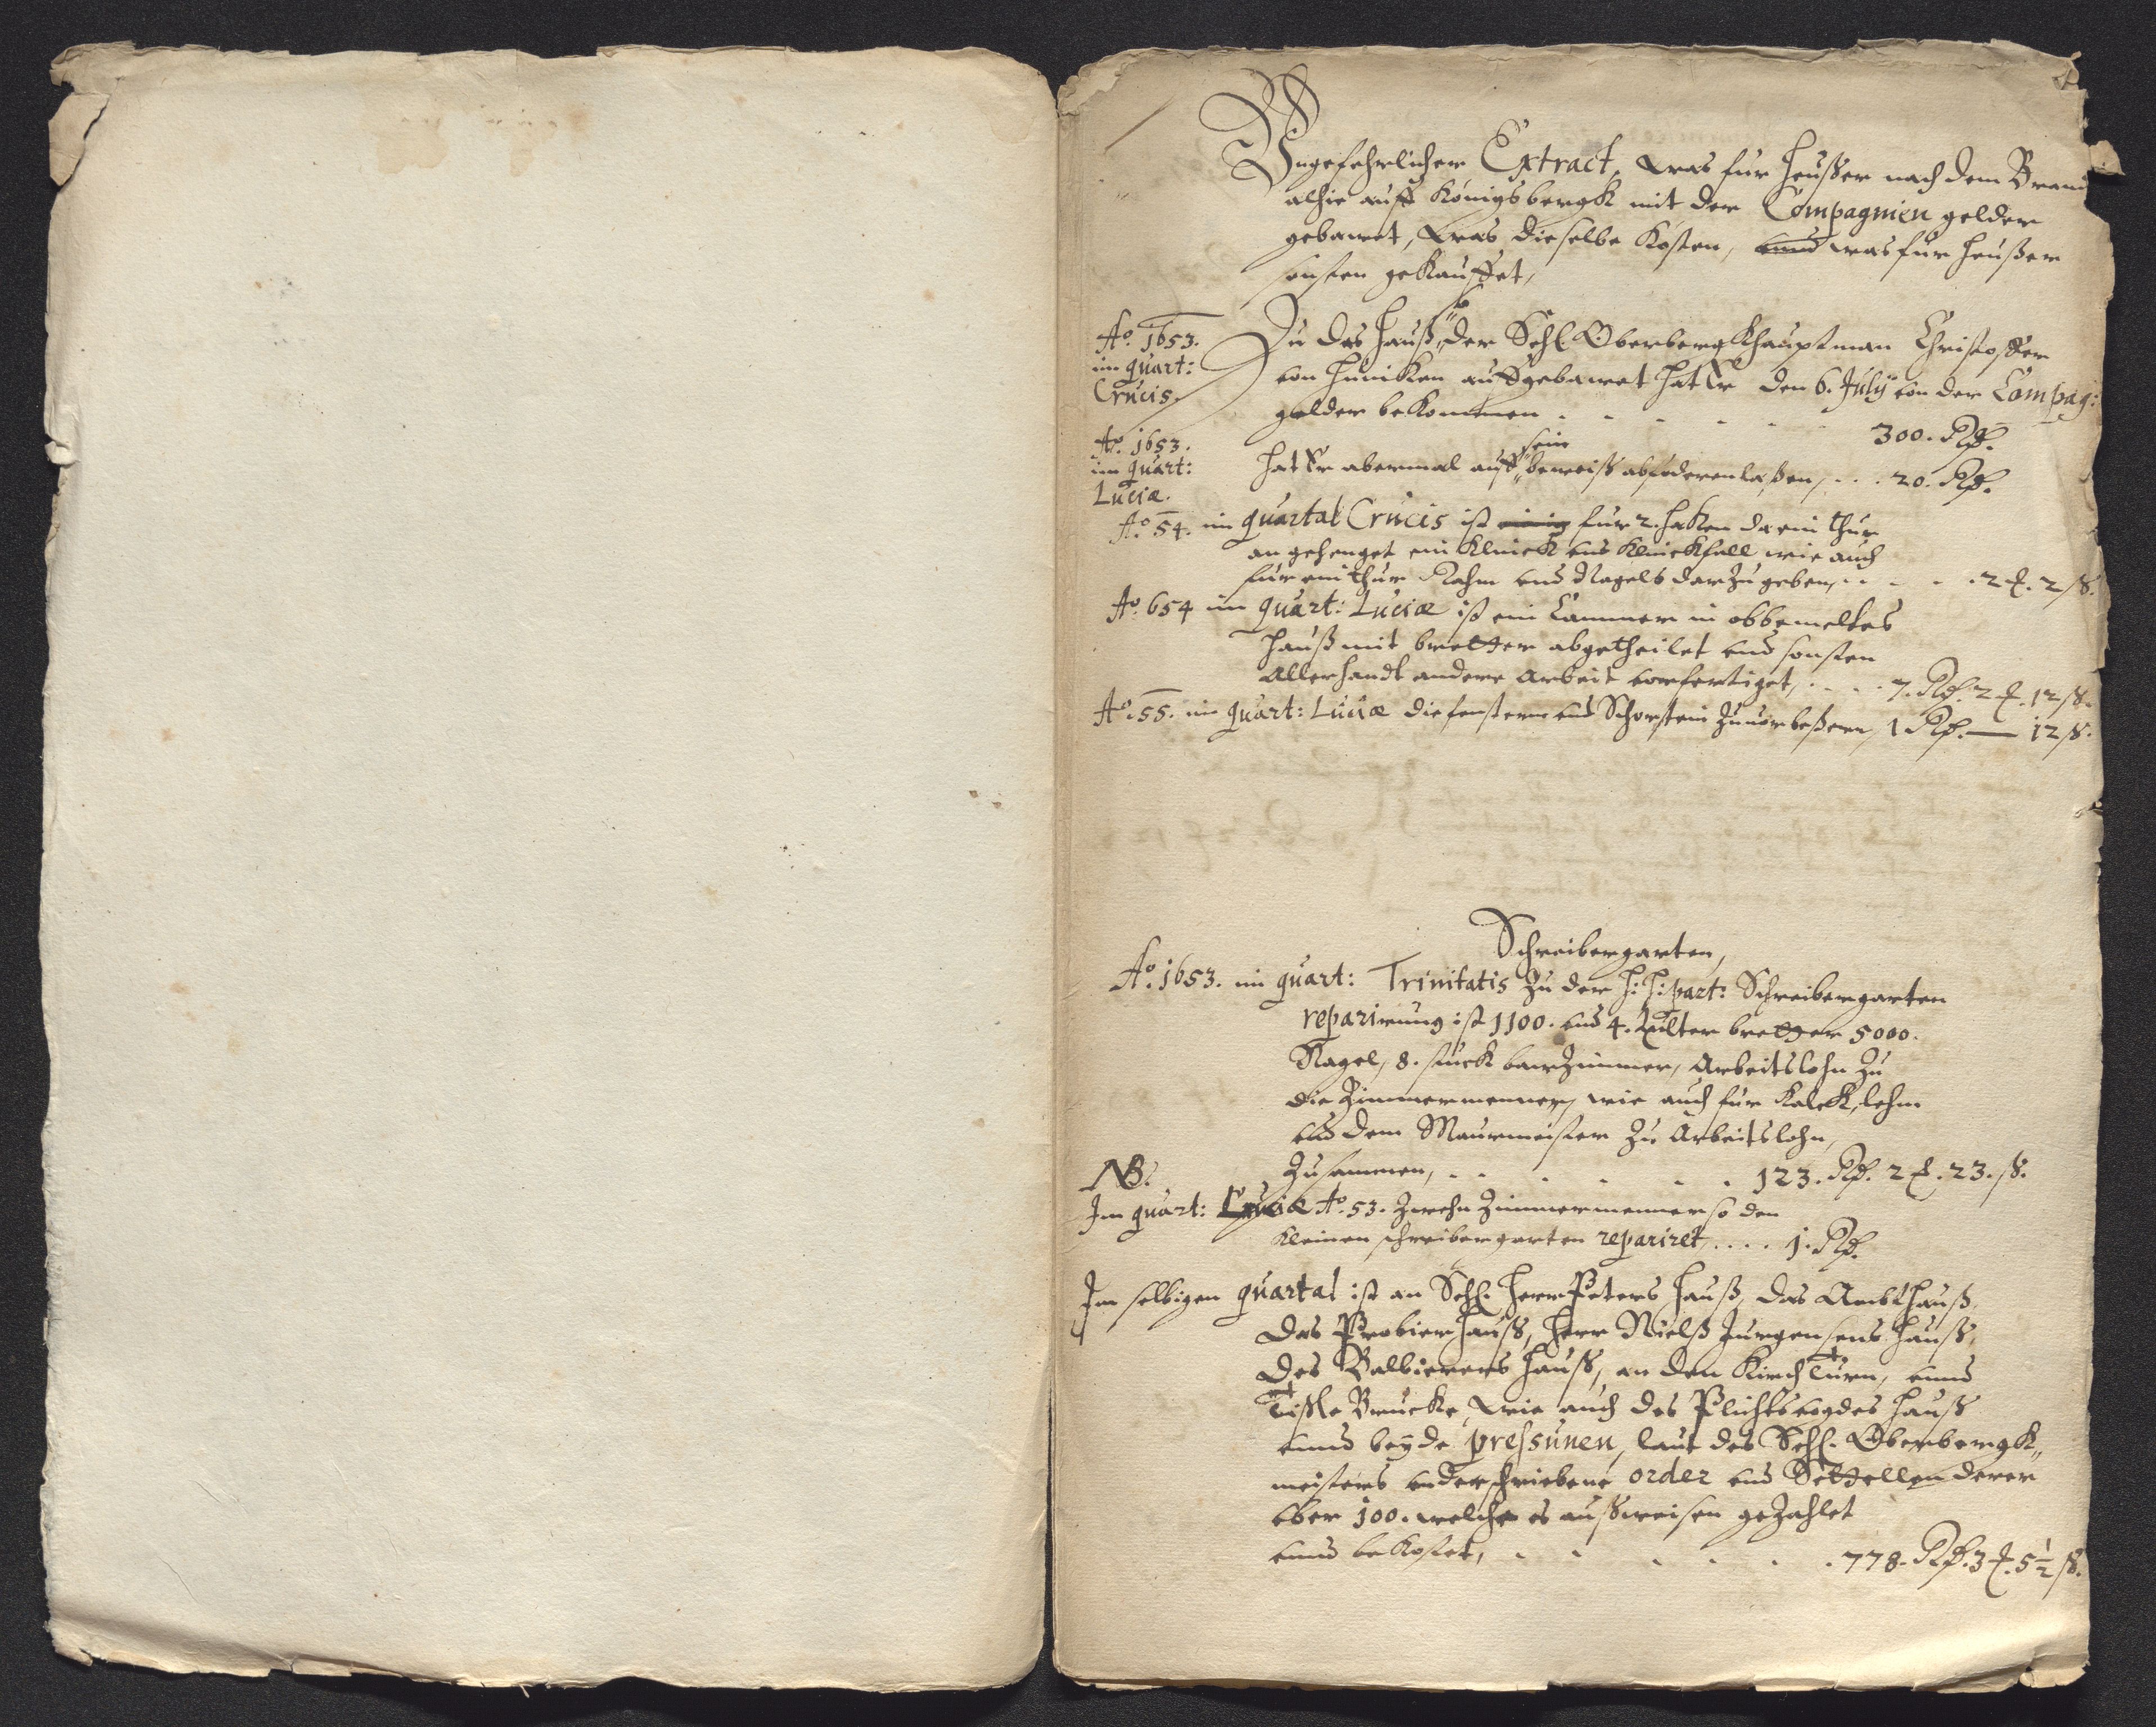 Ungefehrlicher Extract, was fur heusser nach dem Brand
alhie auff Königsbergk mit der Compagnien gelder
gebawet, was dieselbe kosten, vnnd was fur heusser
sonsten gekauffet,
Ao. 1653.
im quart:
Crucis.
Zu das Hauss so der Sehl. Oberbergkhauptman Christoffer
von Huniken auffgebawet hat Er den 6. July von der Compag:
gelder bekommen . . . . . . 300. Rß.
Ao. 1653.
im quart:
Luciæ.
hat Er abermal auff sein beweiss abfoderen lassen, . . . 20. Rß.
Ao. 54. im quartal Crucis ist fur 2. haken da ein thur
angehenget ein klinck vnd klinckfall wie auch
fur ein thur Rahm vnd Nagels darzu geben, . . . . 2 ℔. 2 ß.
Ao. 654 im quart: Luciæ ist ein Cammer in obbemeltes
Hauss mit bretter abgetheilet vnd sonsten
allerhandt andere arbeit verfertiget, . . . . 7. Rß. 2 ℔. 12 ß.
Ao. 55. im quart: Luciæ die fenstern vnd Schorstein zuuorbessern, 1 Rß. — 12 ß.
Schreibergarten,
Ao. 1653. im quart: Trinitatis zu der H: H: part: Schreibergarten
reparirung ist 1100. vnd 4. Tulter bretter 5000.
Nagel, 8. stuck bawzimmer, Arbeitslohn zu
die Zimmermenner, wie auch fur Kalck, lehm
vnd dem Maurmeister zu Arbeitslohn,
zusammen, . . . . . . 123. Rß. 2 ℔. 23. ß.
NB.
Im quart: Luciæ Ao. 53. zwehn Zimmermenner so den
kleinen schreibergarten repariret, . . . . 1. Rß.
Im selbigen quartal ist an Sehl. Herr Peters Hauss, das Ambthauss,
das Probierhauss, Herr Nielss Jurgensens Hauss,
des Balbierers Hauss, an den Kirch Turn, vnnd
Tissle Brucke, wie auch des Plichtsvogdes Hauss
vnnd beyde pressunen, laut des Sehl. Oberbergk„
meisters vnderschriebene order vnd Settellen derer
vber 100. welche es aussweisen gezahlet
vnnd bekostet, . . . . . . 778. Rß. 3 ℔. 5 1/2 ß.